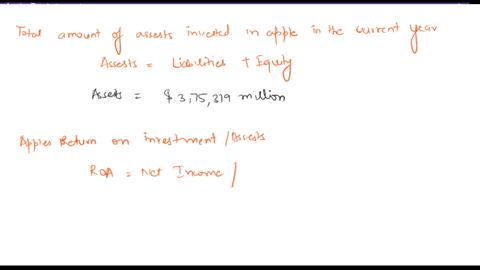 Total amount of assests invested in apple in the current year
Assests = Liabilities + Equity
Assets = $3,75,319 million
Apples Return on investment /Assests
ROA = Net Income /